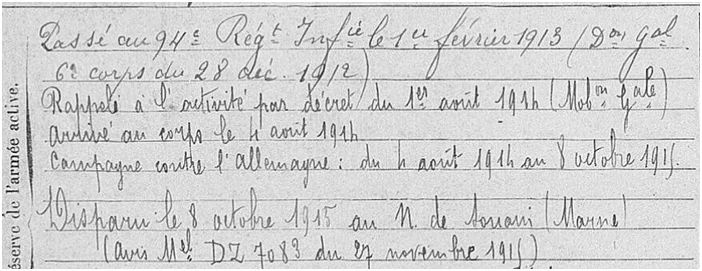 Passé au 94e Régt Infie le 1er février 1913 (Don Gal
6e corps du 28 déc. 1912)
Rappelé à l'activité par décret du 1er août 1914 (Mobon Gale)
arrivé au corps le 4 août 1914
Campagne contre l'Allemagne : du 4 août 1914 au 8 octobre 1915.
Disparu le 8 octobre 1915 au N. de Souain (Marne)
(avis Mel DZ 7083 du 27 novembre 1915)
éserve de l'armée active.